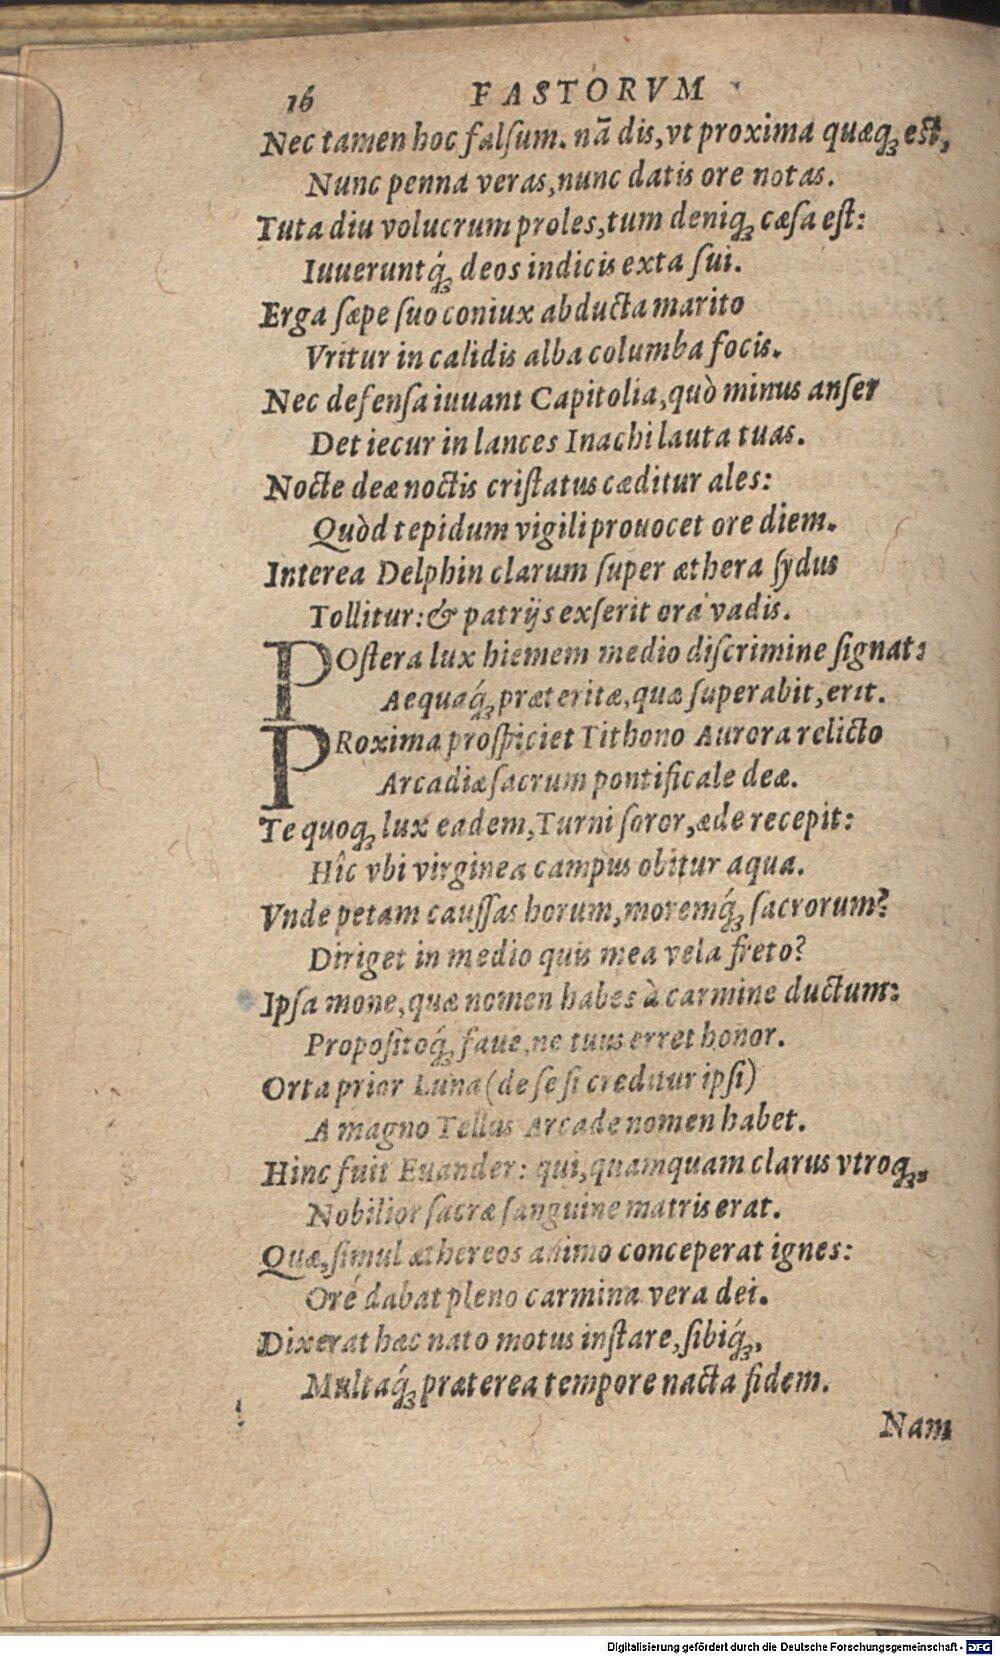 16 FASTORVM
Nec tamen hoc falſum. nā dis, vt proxima quæq; est,
Nunc penna veras, nunc datis ore notas.
Tuta diu volucrum proles, tum deniq; cæſa eſt:
Iuueruntq́; deos indicis exta ſui.
Erga ſæpe ſuo coniux abducta marito
Vritur in calidis alba columba focis.
Nec defenſa iuuant Capitolia, quò minus anſer
Det iecur in lances Inachi lauta tuas.
Nocte deæ noctis criſtatus cæditur ales:
Quòd tepidum vigili prouocet ore diem.
Interea Delphin clarum ſuper æthera ſydus
Tollitur: & patrijs exſerit ora vadis.
POſtera lux hiemem medio diſcrimine ſignat:
Aequaq́; præteritæ, quæ ſuperabit, erit.
PRoxima proſpiciet Tithono Aurora relicto
Arcadiæ ſacrum pontificale deæ.
Te quoq; lux eadem, Turni ſoror, æde recepit:
Hîc vbi virginea campus obitur aqua.
Vnde petam cauſſas horum, moremq́; ſacrorum?
Diriget in medio quis mea vela freto?
Ipſa mone, quæ nomen habes à carmine ductum:
Propoſitoq́; faue, ne tuus erret honor.
Orta prior Luna (de ſe ſi creditur ipſi)
A magno Tellus Arcade nomen habet.
Hinc fuit Euander: qui, quamquam clarus vtroq;,
Nobilior ſacræ ſanguine matris erat.
Quæ, ſimul æthereos animo conceperat ignes:
Ore dabat pleno carmina vera dei.
Dixerat hæc nato motus inſtare, ſibiq́;,
Multaq́; præterea tempore nacta fidem.
Nam
Digitalisierung gefördert durch die Deutsche Forschungsgemeinschaft - DFG